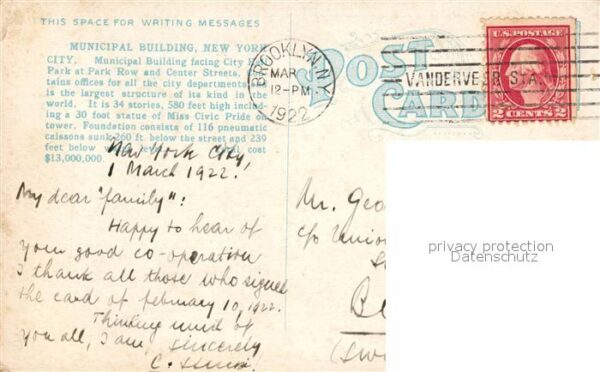 THIS SPACE FOR WRITING MESSAGES
MUNICIPAL BUILDING, NEW YORK
CITY. Municipal Building facing City
Park at Park Row and Center Streets,
tains offices for all the city departments
is the largest structure of its kind in the
world. It is 34 stories, 580 feet high includ-
ing a 30 foot statue of Miss Civic Pride on
tower. Foundation consists of 116 pneumatic
caissons sunk 260 ft below the street and 239
feet below cost
$13,000,000.
POST
CARD
BROOKLYN, N.Y.
MAR
12-PM
1922
VANDERVEER STA.
U.S. POSTAGE
2 CENTS 2
New York City,
1 March 1922.
My dear "family":
Happy to hear of
your good co-operation
I thank all those who signed
the card of february 10, 1922.
Thinking much of
you all, I am, sincerely
C.
Mr. Geo
c/o Union
Be
(Sw
privacy protection
Datenschutz